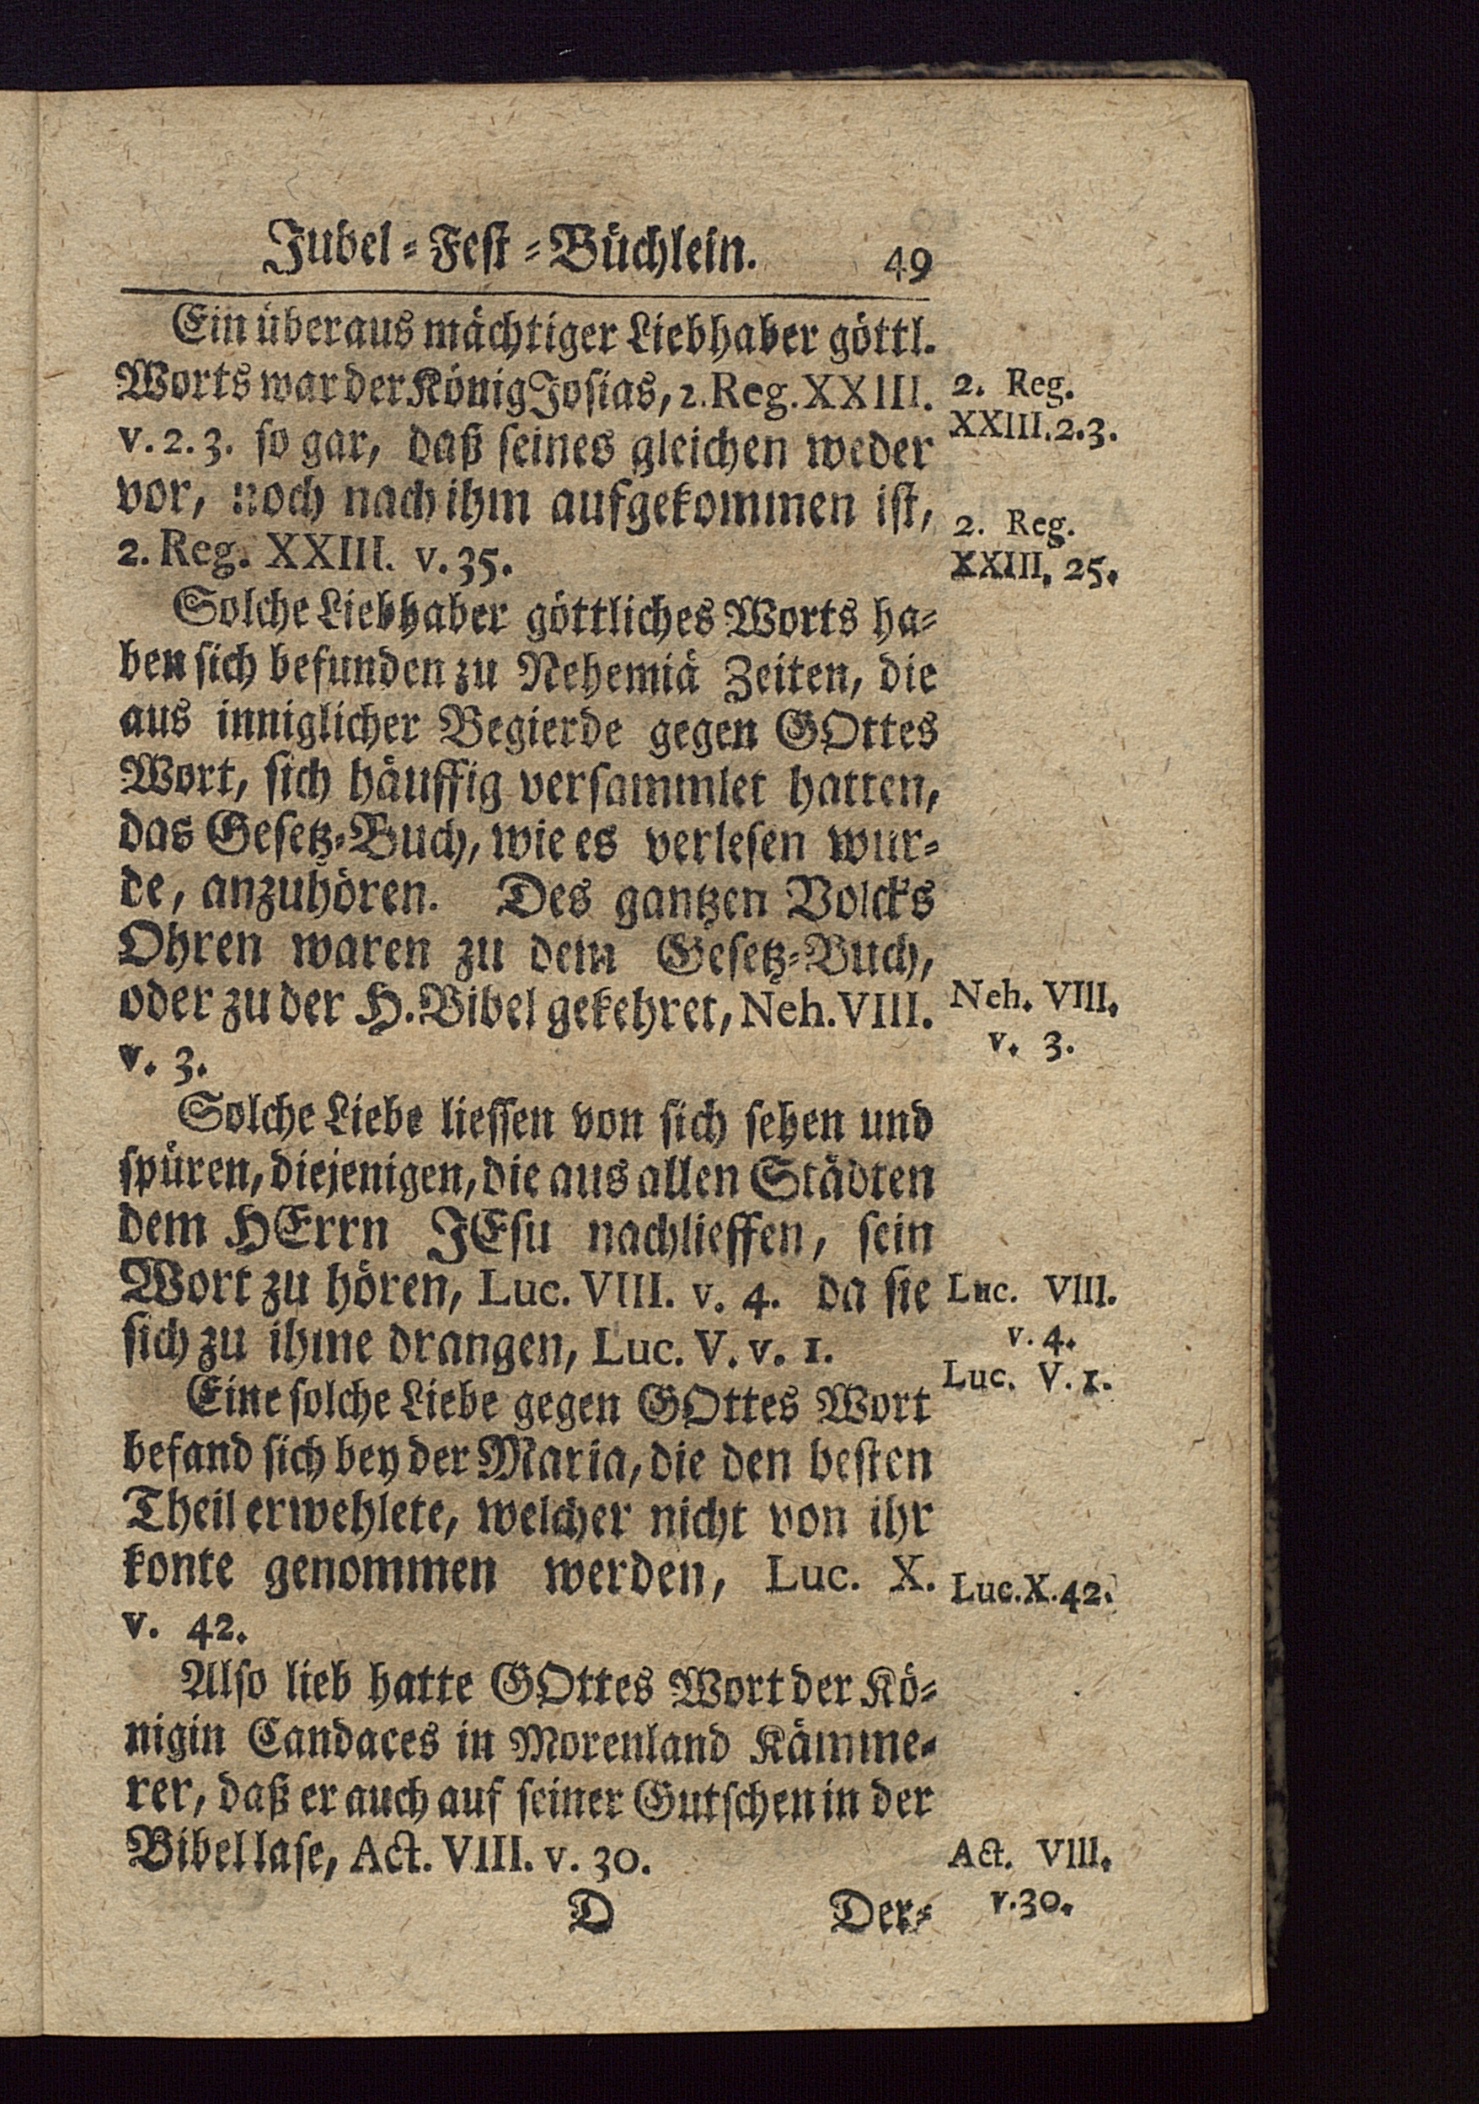 Jubel-Fest-Büchlein. 49
Ein überaus mächtiger Liebhaber göttl.
Worts war der König Josias, 2. Reg. XXIII.
v. 2. 3. so gar, daß seines gleichen weder
vor, noch nach ihm aufgekommen ist,
2. Reg. XXIII. v. 35.
2. Reg.
XXIII. 2. 3.
2. Reg.
XXIII. 25.
Solche Liebhaber göttliches Worts ha-
ben sich befunden zu Nehemiä Zeiten, die
aus inniglicher Begierde gegen GOttes
Wort, sich häuffig versammlet hatten,
das Gesetz-Buch, wie es verlesen wur-
de, anzuhören. Des gantzen Volcks
Ohren waren zu dem Gesetz-Buch,
oder zu der H. Bibel gekehret, Neh. VIII.
v. 3.
Neh. VIII.
v. 3.
Solche Liebe liessen von sich sehen und
spüren, diejenigen, die aus allen Städten
dem HErrn JEsu nachlieffen, sein
Wort zu hören, Luc. VIII. v. 4. da sie
sich zu ihme drangen, Luc. V. v. 1.
Luc. VIII.
v. 4.
Luc. V. 1.
Eine solche Liebe gegen GOttes Wort
befand sich bey der Maria, die den besten
Theil erwehlete, welcher nicht von ihr
konte genommen werden, Luc. X.
v. 42.
Luc. X. 42.
Also lieb hatte GOttes Wort der Kö-
nigin Candaces in Morenland Kämme-
rer, daß er auch auf seiner Gutschen in der
Bibel lase, Act. VIII. v. 30.
Act. VIII.
v. 30.
D Der-